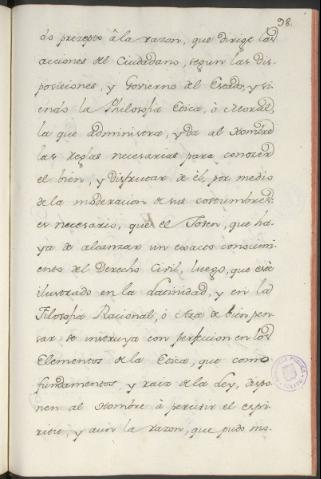 98.
ó's precepto â la razon, que dirige las
acciones del Ciudadano, segun las Dis-
posiciones, y Govierno del Estado, y si-
endo la Philosofia Etica, ó Moral
la que administra, y da al Hombre
las reglas necesarias para conocer
el bien, y disfrutar de él por medio
de la moderacion de sus costumbres:
es necesario, que el Joven, que ha-
ya de alcanzar un exacto conocimi-
ento del Derecho Civil, luego, que esté
ilustrado en la Latinidad, y en la
Filosofia Racional, ó Arte de bien pen-
sar se instruya con perfeccion en los
Elementos de la Etica, que como
fundamentos, y raiz de la Ley, dispo-
nen al Hombre â percivir el espi-
ritu, y aun la razon, que pudo mo-